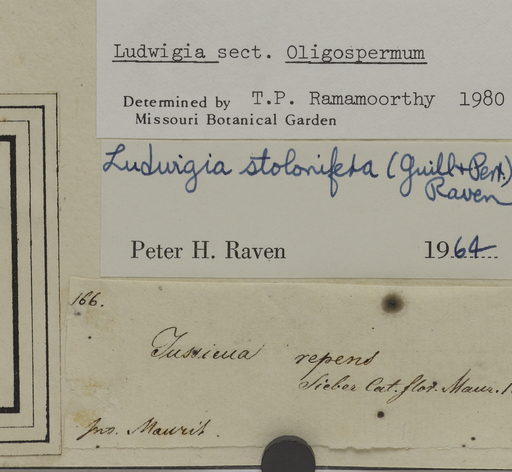 Ludwigia sect. Oligospermum
Determined by T.P. Ramamoorthy 1980
Missouri Botanical Garden
Ludwigia stolonifera (Guill+Perr.)
Raven
Peter H. Raven 1964
166.
Jussieua repens
Sieber Cat. flor. Maur.
Maurit.